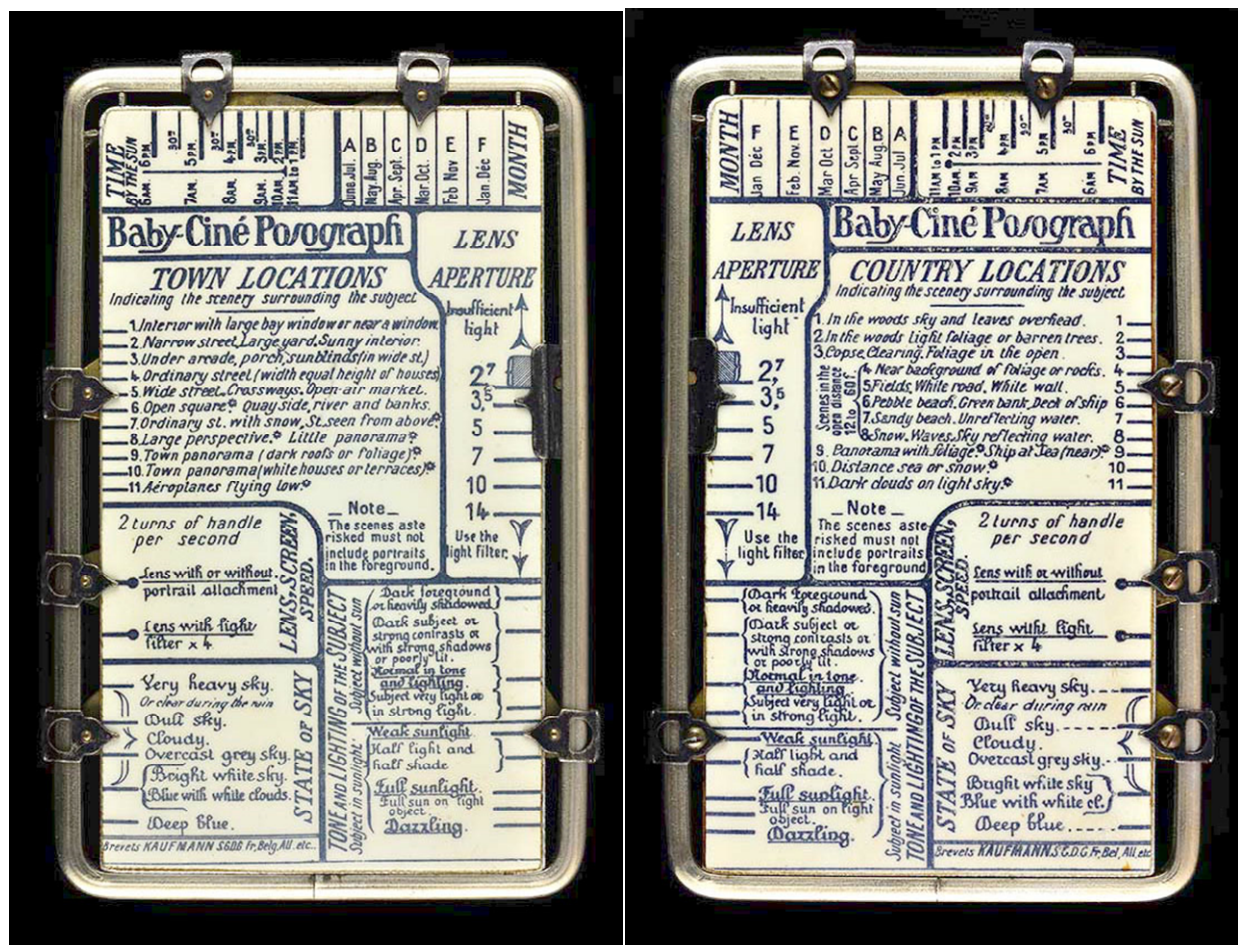 TIME
BY THE SUN
6 P.M.
30m
5 P.M.
30m
4 P.M.
30m
3 P.M.
2 P.M.
1 P.M.
6 A.M.
7 A.M.
8 A.M.
9 A.M.
10 A.M.
11 A.M to
A June. Jul.
B May. Aug.
C Apr. Sept.
D Mar. Oct.
E Feb Nov
F Jan. Déc
MONTH
Baby-Ciné Posograph
LENS
APERTURE
TOWN LOCATIONS
Indicating the scenery surrounding the subject
1. Interior with large bay window or near a window
2. Narrow street, Large yard, Sunny interior.
3. Under arcade, porch, sunblinds (in wide st.)
4. Ordinary street (width equal height of houses)
5. Wide street. Crossways. Open-air market.
6. Open square.* Quayside, river and banks.
7. Ordinary st. with snow, St. seen from above.*
8. Large perspective.* Little panorama*
9. Town panorama (dark roofs or foliage)*
10. Town panorama (white houses or terraces)*
11. Aéroplanes flying low.*
Insufficient
light
2,7
3,5
5
7
10
14
Use the
light filter
_ Note _
The scenes aste
risked must not
include portraits
in the foreground.
2 turns of handle
per second
Lens with or without.
portrait attachment
Lens with light
filter x 4
LENS, SCREEN,
SPEED.
Very heavy sky.
Or clear during the rain
Dull sky.
Cloudy.
Overcast grey sky.
Bright white sky.
Blue with white clouds.
Deep blue.
STATE OF SKY
TONE AND LIGHTING OF THE SUBJECT
Subject without sun
Subject in sunlight.
Dark foreground
or heavily shadowed.
Dark subject or
strong contrasts or
with strong shadows
or poorly lit.
Normal in tone
and lighting.
Subject very light or
in strong light.
Weak sunlight
Half light and
half shade
Full sunlight.
Full sun on light
object.
Dazzling.
Brevets KAUFMANN S.G.D.G Fr, Belg, All. etc..
MONTH
F Jan Déc
E Feb. Nov.
D Mar Oct
C Apr. Sept
B May Aug.
A Jun. Jul
1 P.M.
2 P.M.
3 P.M.
30m
4 P.M.
30m
5 P.M.
30m
6 P.M.
11 A.M to
10 A.M.
9 A.M
8 A.M.
7 A.M.
6 A.M
TIME
BY THE SUN
LENS
APERTURE
Baby-Ciné Posograph
COUNTRY LOCATIONS
Indicating the scenery surrounding the subject
Insufficient
light
2,7
3,5
5
7
10
14
Use the
light filter
1. In the woods sky and leaves overhead. 1
2. In the woods Light foliage or barren trees. 2
3. Copse. Clearing. Foliage in the open. 3
Scenes in the
open distance
12 to 60 f.
4. Near background of foliage or rocks. 4
5. Fields, White road, White wall. 5
6. Pebble beach, Green bank, Deck of ship 6
7. Sandy beach. Unreflecting water. 7
8. Snow. Waves. Sky reflecting water. 8
9. Panorama with foliage.* Ship at Sea (near).* 9
10. Distance sea or snow.* 10
11. Dark clouds on light sky.* 11
_ Note _
The scenes aste
risked must not
include portraits
in the foreground.
LENS, SCREEN,
SPEED.
2 turns of handle
per second
Lens with or without
portrait attachment
Lens witht light
filter x 4
Dark foreground
or heavily shadowed.
Dark subject or
strong contrasts or
with strong shadows
or poorly lit.
Normal in tone.
and lighting.
Subject very light or
in strong light.
Weak sunlight
Half light and
half shade.
Full sunlight.
Full sun on light
object.
Dazzling.
Subject without sun
Subject in sunlight.
TONE AND LIGHTING OF THE SUBJECT
STATE OF SKY
Very heavy sky.
Or clear during rain
Dull sky.
Cloudy.
Overcast grey sky.
Bright white sky
Blue with white cl.
Deep blue
Brevets KAUFMANN, S.G.D.G. Fr, Bel, All, etc